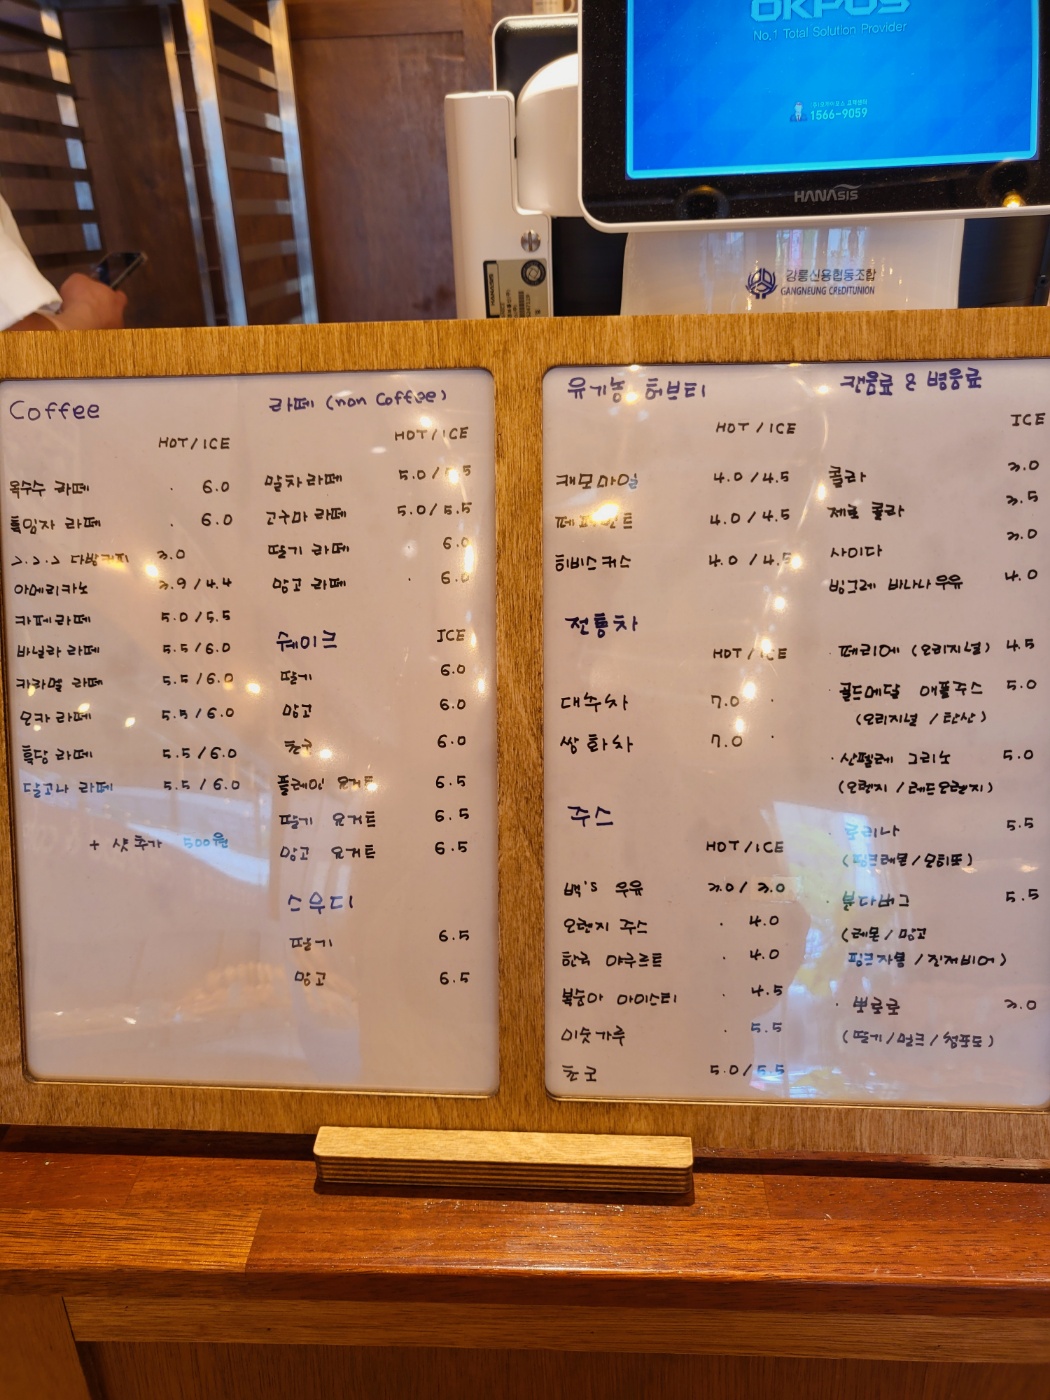 OKPOS
No.1 Total Solution Provider
1566-9059
HANAsis
강릉신용협동조합
GANGNEUNG CREDITUNION
Coffee
HOT/ICE
옥수수 라떼 · 6.0
흑임자 라떼 · 6.0
2.2.2 다방커피 3.0
아메리카노 3.9/4.4
카페라떼 5.0/5.5
바닐라 라떼 5.5/6.0
카라멜 라떼 5.5/6.0
모카 라떼 5.5/6.0
흑당 라떼 5.5/6.0
달고나 라떼 5.5/6.0
+ 샷 추가 500원
라떼 (non Coffee)
HOT/ICE
말차 라떼 5.0/5.5
고구마 라떼 5.0/5.5
딸기 라떼 6.0
망고 라떼 · 6.0
쉐이크 ICE
딸기 6.0
망고 6.0
초코 6.0
플레인 요거트 6.5
딸기 요거트 6.5
망고 요거트 6.5
스무디
딸기 6.5
망고 6.5
유기농 허브티
HOT/ICE
캐모마일 4.0/4.5
페퍼민트 4.0/4.5
히비스커스 4.0/4.5
전통차
HOT/ICE
대추차 7.0 ·
쌍화차 7.0 ·
주스
HOT/ICE
백's 우유 3.0/3.0
오렌지 주스 · 4.0
한국 야쿠르트 · 4.0
복숭아 아이스티 · 4.5
미숫가루 · 5.5
초코 5.0/5.5
캔음료 & 병음료
ICE
콜라 3.0
제로 콜라 3.5
사이다 3.0
빙그레 바나나우유 4.0
· 페리에 (오리지널) 4.5
· 골드메달 애플주스 5.0
(오리지널 / 탄산)
· 산펠레 그리노 5.0
(오렌지 / 레드오렌지)
· 로리나 5.5
(핑크레몬/모히또)
· 분다버그 5.5
(레몬 / 망고
핑크자몽 / 진저비어)
· 뽀로로 3.0
(딸기/밀크/청포도)